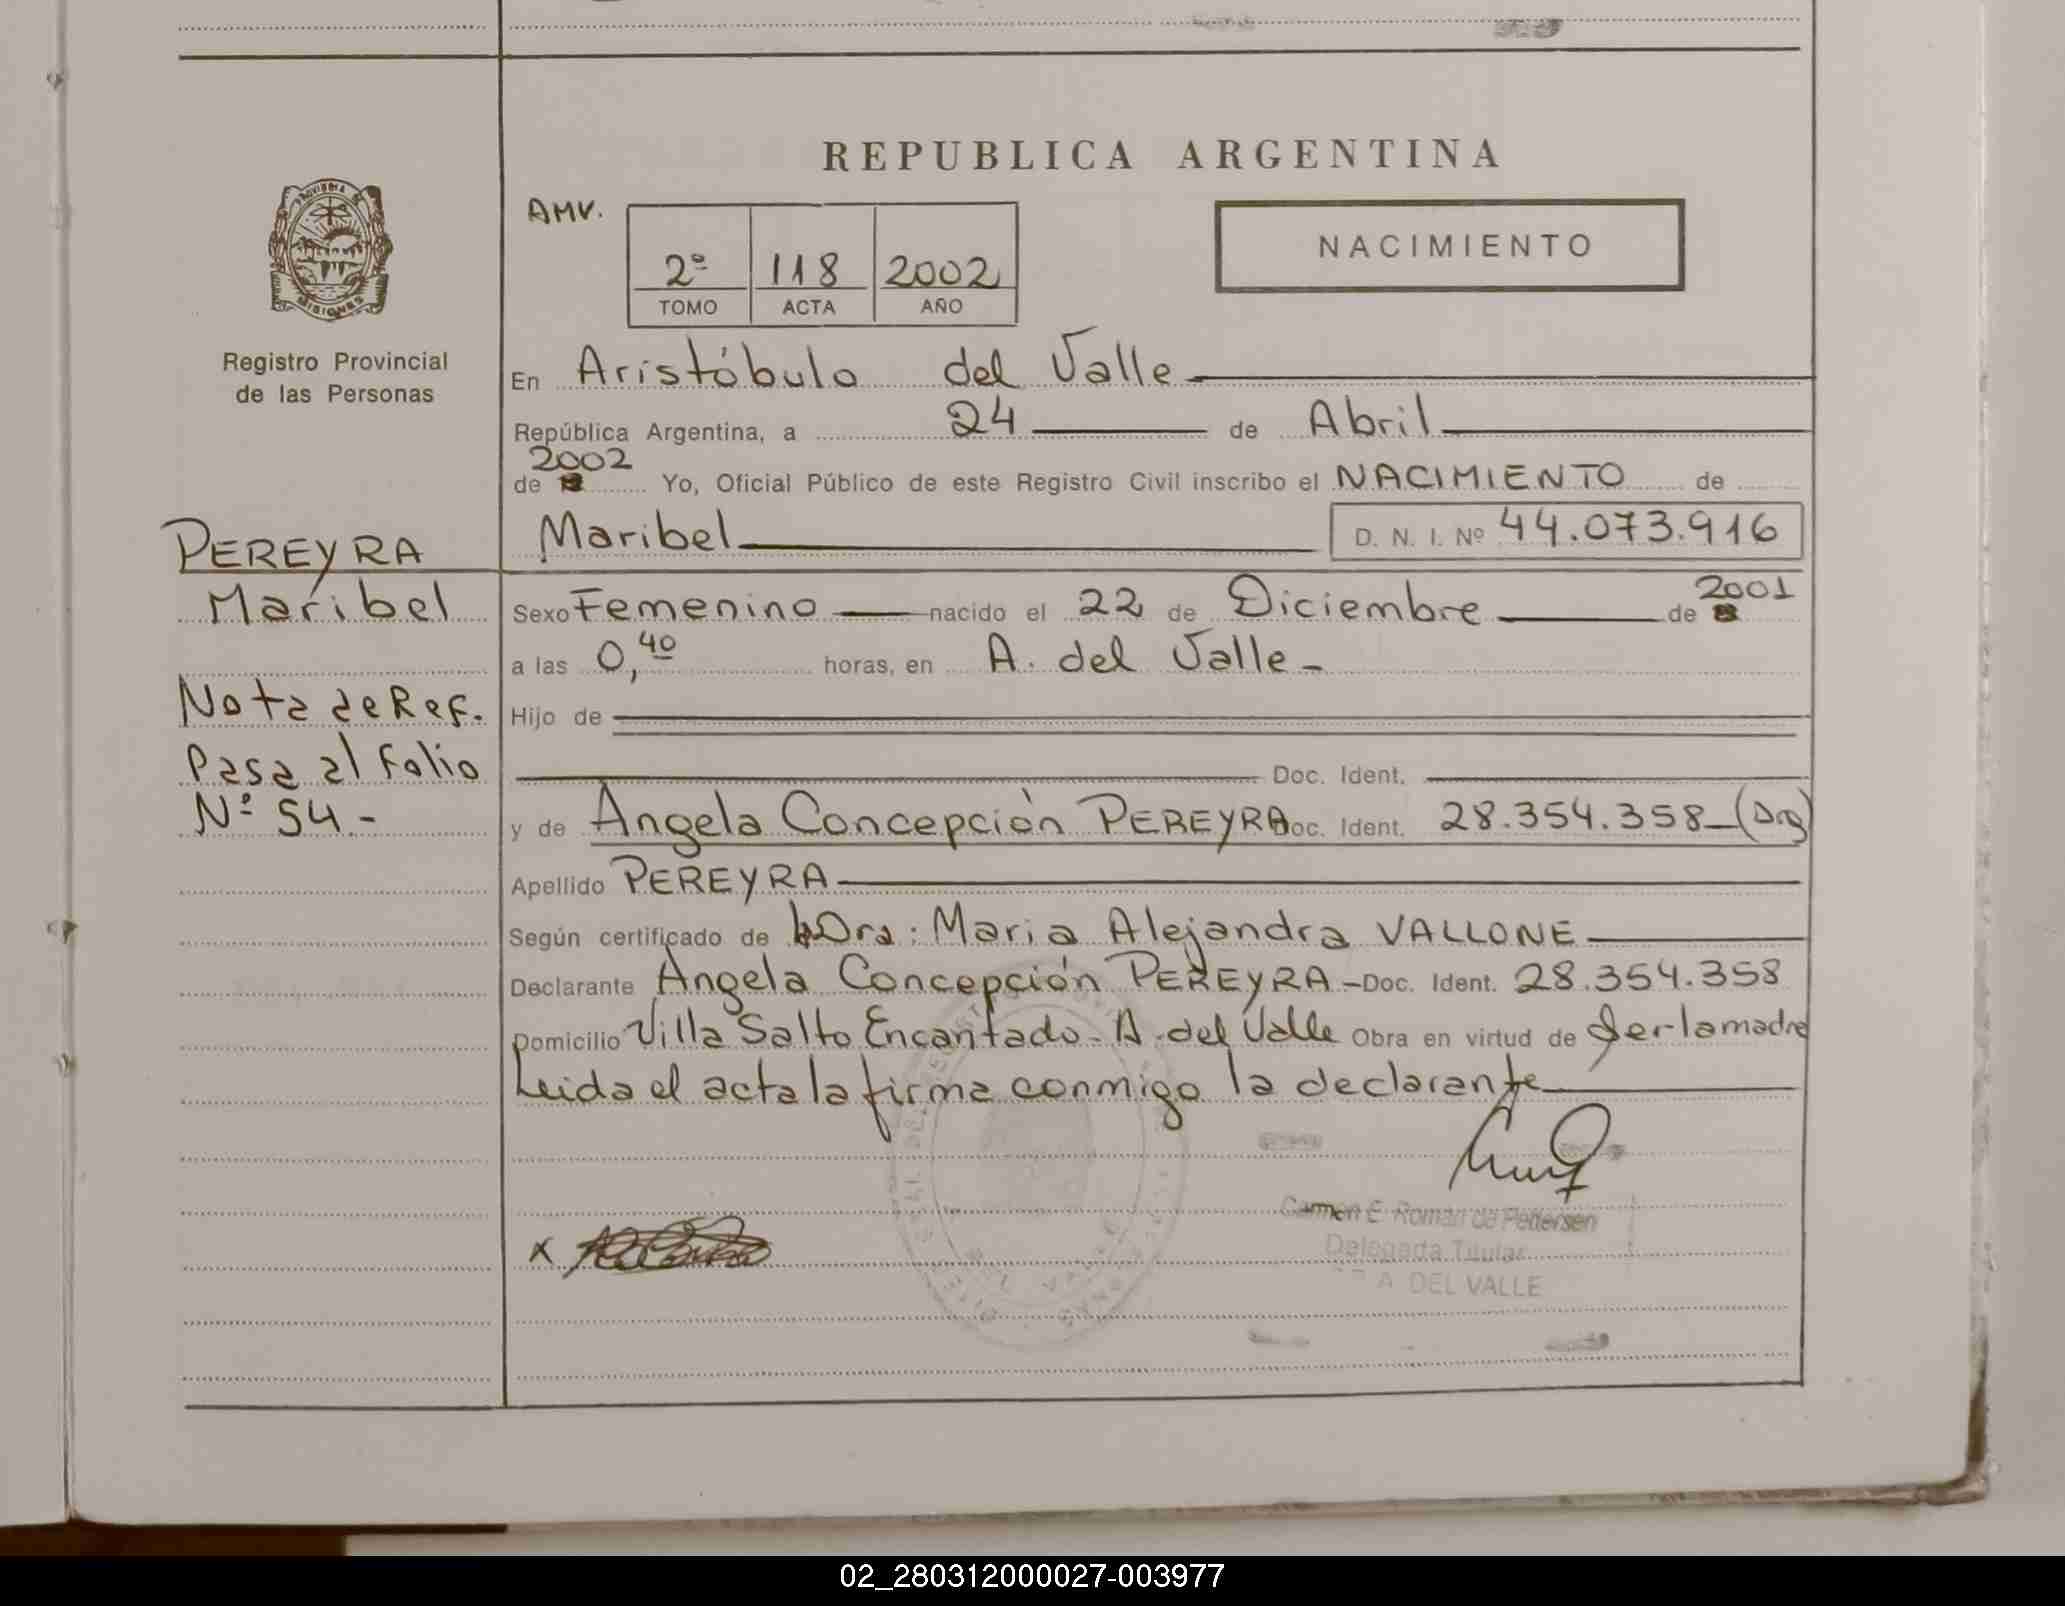 REPUBLICA ARGENTINA
AMV.
2º 118 2002
TOMO ACTA AÑO
NACIMIENTO
PROVINCIA DE
MISIONES
Registro Provincial
de las Personas
En Aristóbulo del Valle
República Argentina, a 24 de Abril
2002
de Yo, Oficial Público de este Registro Civil inscribo el NACIMIENTO de
Maribel D. N. I. Nº 44.073.916
PEREYRA
Maribel
Sexo Femenino nacido el 22 de Diciembre de 2001
a las 0,40 horas, en A. del Valle -
Nota de Ref.
Pasa al Folio
Nº 54.-
Hijo de
Doc. Ident.
y de Angela Concepción PEREYRA Doc. Ident. 28.354.358 (Arg)
Apellido PEREYRA
Según certificado de Dra: Maria Alejandra VALLONE
Declarante Angela Concepción PEREYRA - Doc. Ident. 28.354.358
Domicilio Villa Salto Encantado - A. del Valle Obra en virtud de ser la madre
Leida el acta la firma conmigo la declarante
Carmen E. Román de Pedersen
Delegada Titular
A. DEL VALLE
X
02_280312000027-003977